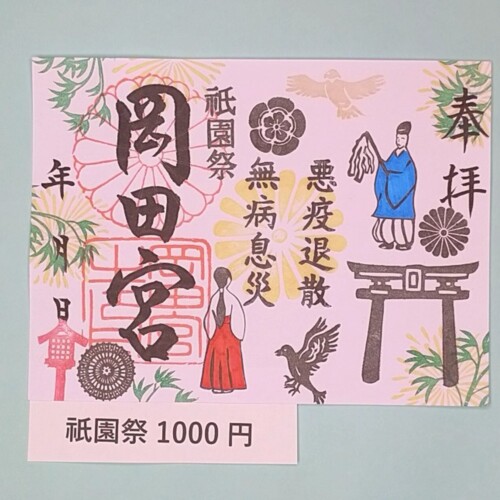 奉拝
悪疫退散
無病息災
祇園祭
岡田宮
年月日
祇園祭 1000 円